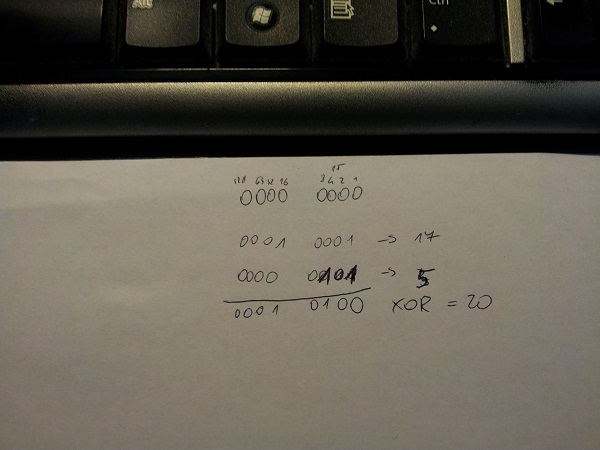 Alt Ctrl
15
128 64 32 16 8 4 2 1
0000 0000
0001 0001 -> 17
0000 0101 -> 5
0001 0100 XOR = 20